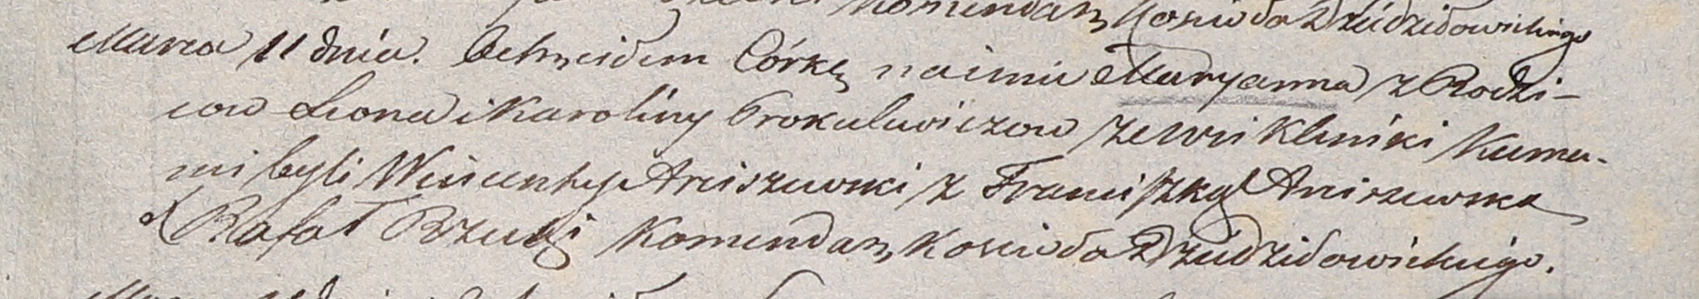 Komendarz Kościoła Dziedziłowickiego
Marca 11 dnia. Ochrzciłem Córkę na imie Maryanna z Rodzi-
cow Leona i Karoliny Prokulewiczow ze wsi Kliniki Kuma-
mi byli Wincenty Aniszewski z Franciszką Aniszewską
X Rafał Komendarz Kościoła Dziedziłowickiego.